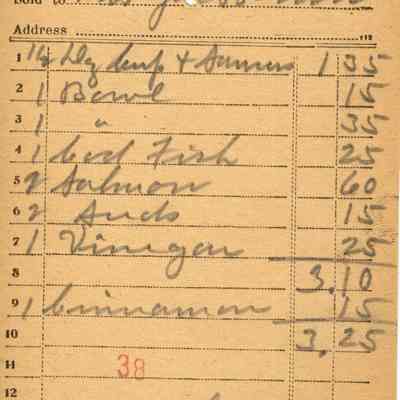 Sold to
Address 191
1 1½ Dz Cups + Saucers 1 35
2 1 Bowl 15
3 1 " 35
4 1 Cod Fish 25
5 2 Salmon 60
6 2 Suds 15
7 1 Vinegar 25
8 3.10
9 1 Cinnamon 15
10 3.25
11 38
12